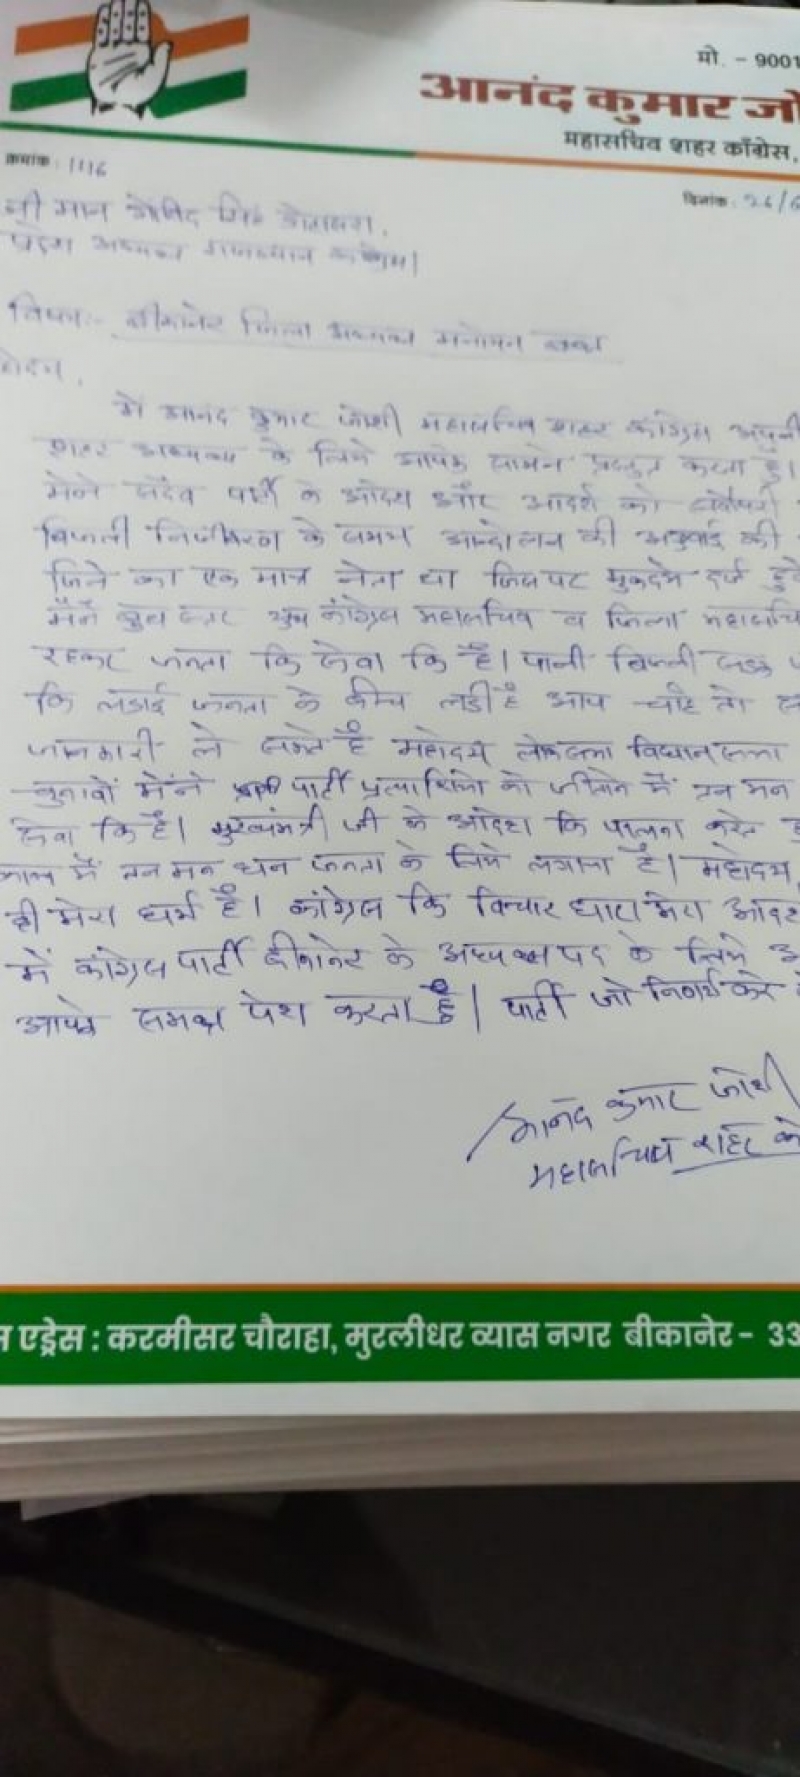 मो. - 9001
आनंद कुमार जो
महासचिव शहर काँग्रेस,
क्रमांक : 1116
दिनांक : 26/6
श्री मान गोविन्द सिंह डोटासरा,
प्रदेश अध्यक्ष राजस्थान कांग्रेस।
विषय:- बीकानेर जिला अध्यक्ष मनोनयन
में आनंद कुमार जोशी महासचिव शहर कांग्रेस अपनी
शहर अध्यक्ष के लिये आपके सामने प्रस्तुत करता हु।
मेने सदैव पार्टी के और आदर्श को सर्वोपरी
बिजली निजीकरण के समय आन्दोलन की अगुवाई की
जिले का एक मात्र नेता था जिस पर मुकदमे दर्ज हुवे
मैंने युथ कांग्रेस महासचिव व जिला महासचि
रहकर जनता कि सेवा कि है। पानी बिजली सडक
कि लडाई जनता के बीच लडी है आप चाहे तो
जानकारी ले सकते है महोदय लोकसभा विधानसभा
चुनावों मेंने पार्टी प्रत्याशियो को जीताने में तन मन
सेवा कि है। मुख्यमंत्री जी के आदेश कि पालना करते हु
काल में तन मन धन जनता के लिये लगाया है। महोदय
ही मेरा धर्म है। कांग्रेस कि विचार धारा मेरा आदर
में कांग्रेस पार्टी बीकानेर के अध्यक्ष पद के लिये
आपके समक्ष पेश करता हुँ। पार्टी जो निर्णय करे
आनंद कुमार जोशी
महासचिव शहर कां
एड्रेस : करमीसर चौराहा, मुरलीधर व्यास नगर बीकानेर - 33